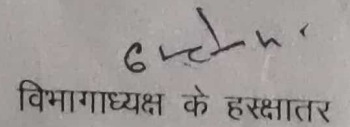 विभागाध्यक्ष के हरक्षातर